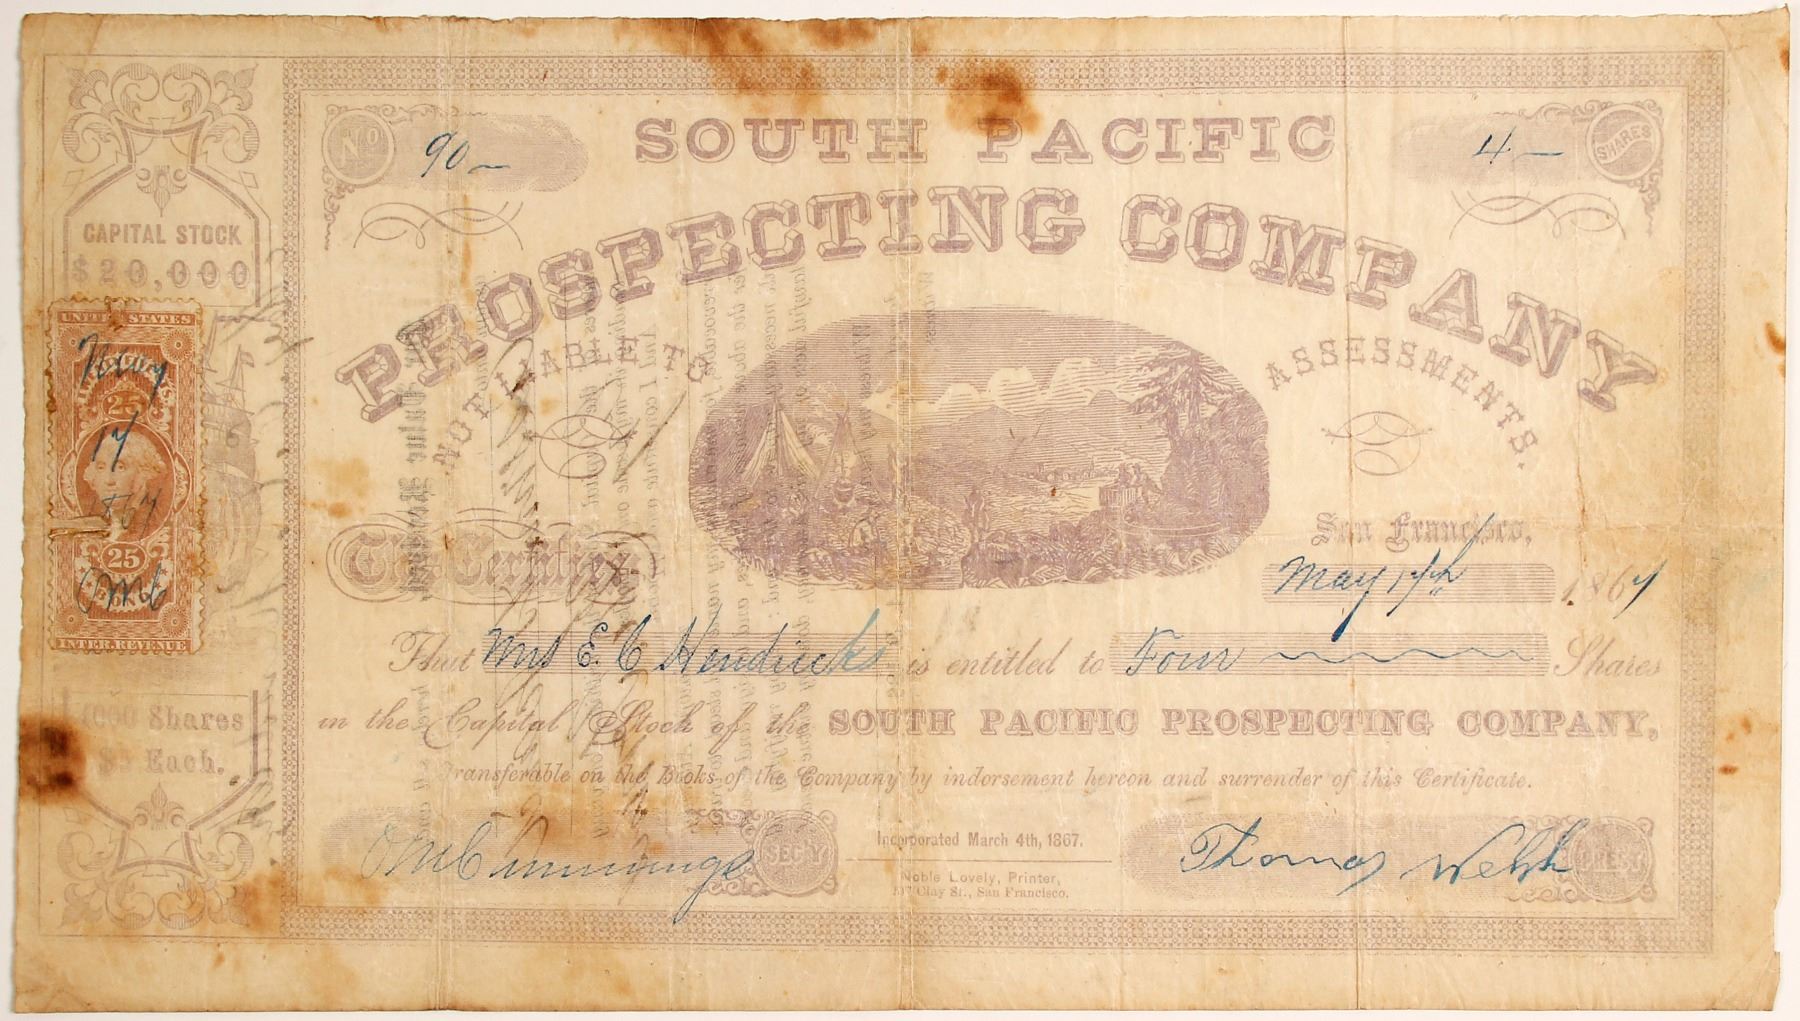 No
90
SOUTH PACIFIC
4
SHARES
PROSPECTING COMPANY
NOT LIABLE TO
ASSESSMENTS.
CAPITAL STOCK
$20,000
UNITED STATES
25
May
17
1867
25
OMC
INTER. REVENUE
4000 Shares
$5 Each.
San Francisco,
May 17th 1867
This Certifies
That Mrs E. C Hendricks is entitled to Four Shares
in the Capital Stock of the SOUTH PACIFIC PROSPECTING COMPANY,
Transferable on the Books of the Company by indorsement hereon and surrender of this Certificate.
SEC'Y
Incorporated March 4th, 1867.
Thomas Welsh
PRES'T
Noble Lovely, Printer,
Clay St., San Francisco.